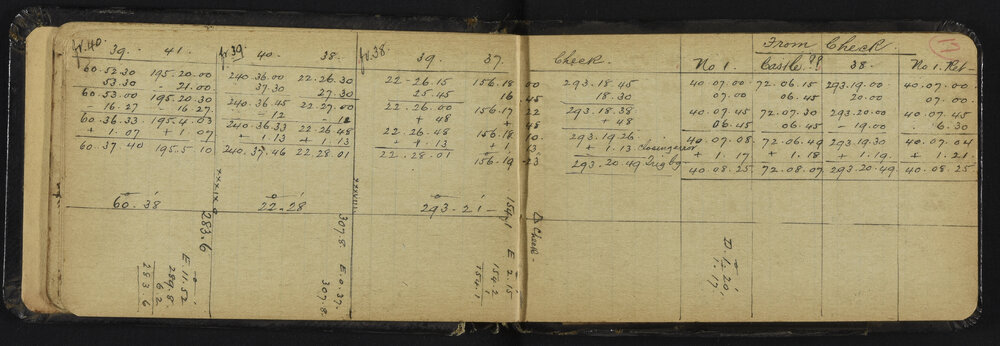 From Check.
17
fr. 40 39. 41. fr. 39 40. 38. fr. 38. 39. 37. Check. No 1. Castle 38. No 1. Ret
60.52.30 195.20.00 240.36.00 22.26.30 22-26.15 156.18 00 293.18.45 40.07.00 72.06.15 293.19.00 40.07.00
53.30 - 21.00 37.30 27.30 25.45 16 45 18.30 07.00 06.45 20.00 07.00
60.53.00 195.20.30 240.36.45 22.27.00 22-26.00 156.17 22 293.18.38 40.07.45 72.07.30 293.20.00 40.07.45
- 16.27 16 27 - 12 - 12 + 48 + 48 - 48 06.45 06.45 - 19.00 6.30
60.36.33 195.4.03 240.36.33 22.26.48 22-26.48 156.18 10 293.19.26 40.07.08 72.06.49 293.19.30 40.07.04
+ 1.07 + 1.07 + 1.13 + 1.13 + 1.13 + 1 13 + 1.13 Closing error + 1.17 + 1.18 + 1.19. + 1.21
60.37 40 195.5 10 240.37.46 22.28.01 22.28.01 156.19 -23 293.20.49 Rugby 40.08.25 72.08.07 293.20.49 40.08.25
60.38 22-28 293-21-
XXXIX
283.6
E 11.52
289.8.
6.2
283 6
XXXVIII
307.8.
E.0.37.
307.8.
154.1
E 2.15
154.2
1
154.1
Δ Check.
D. 1.20
1.17